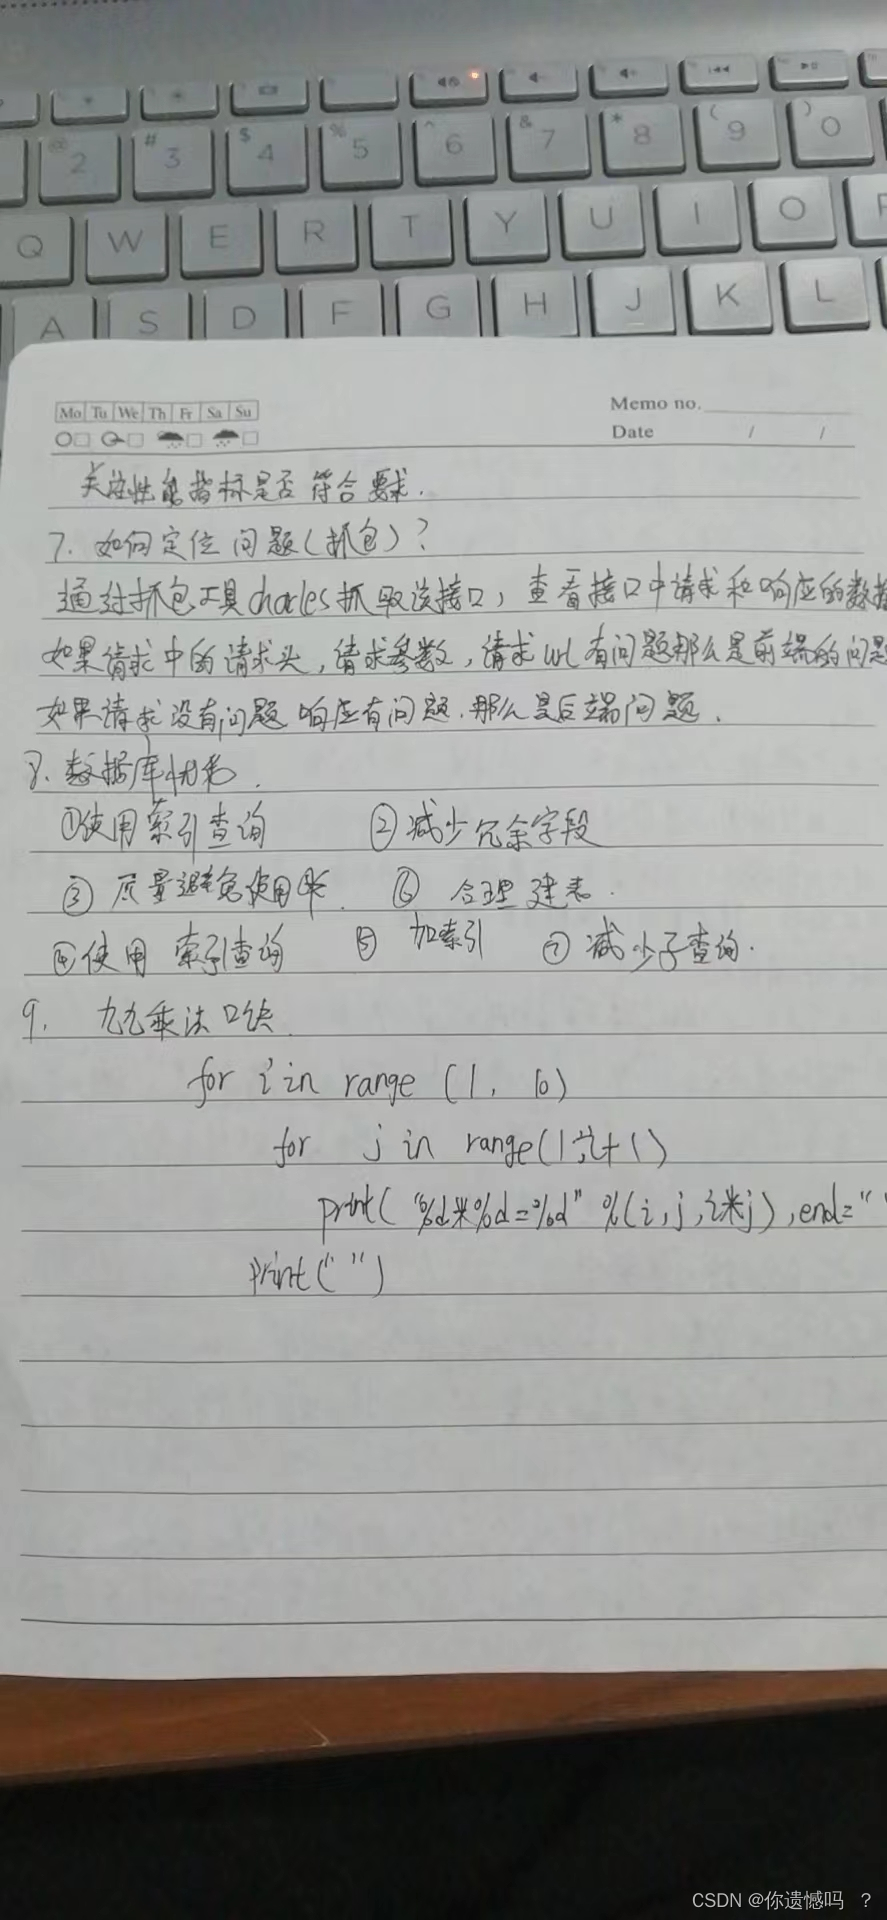 @ 2 # 3 $ 4 % 5 ^ 6 & 7 * 8 ( 9 ) 0
Q W E R T Y U I O P
A S D F G H J K L
Mo Tu We Th Fr Sa Su
Memo no.
Date / /
关注性能指标是否符合要求.
7. 如何定位问题(抓包)?
通过抓包工具charles抓取该接口, 查看接口中请求和响应的数据
如果请求中的请求头, 请求参数, 请求url有问题那么是前端的问题
如果请求没有问题 响应有问题. 那么是后端问题.
8. 数据库优化.
①使用索引查询 ②减少冗余字段
③ 质量避免使用 ⑥ 合理建表.
④使用 索引查询 ⑤ 加索引 ⑦ 减少子查询.
9. 九九乘法口诀
for i in range (1, 10)
for j in range(1,i+1)
print("%d*%d=%d" %(i,j,i*j),end=" "
print(" ")
CSDN @你遗憾吗 ?